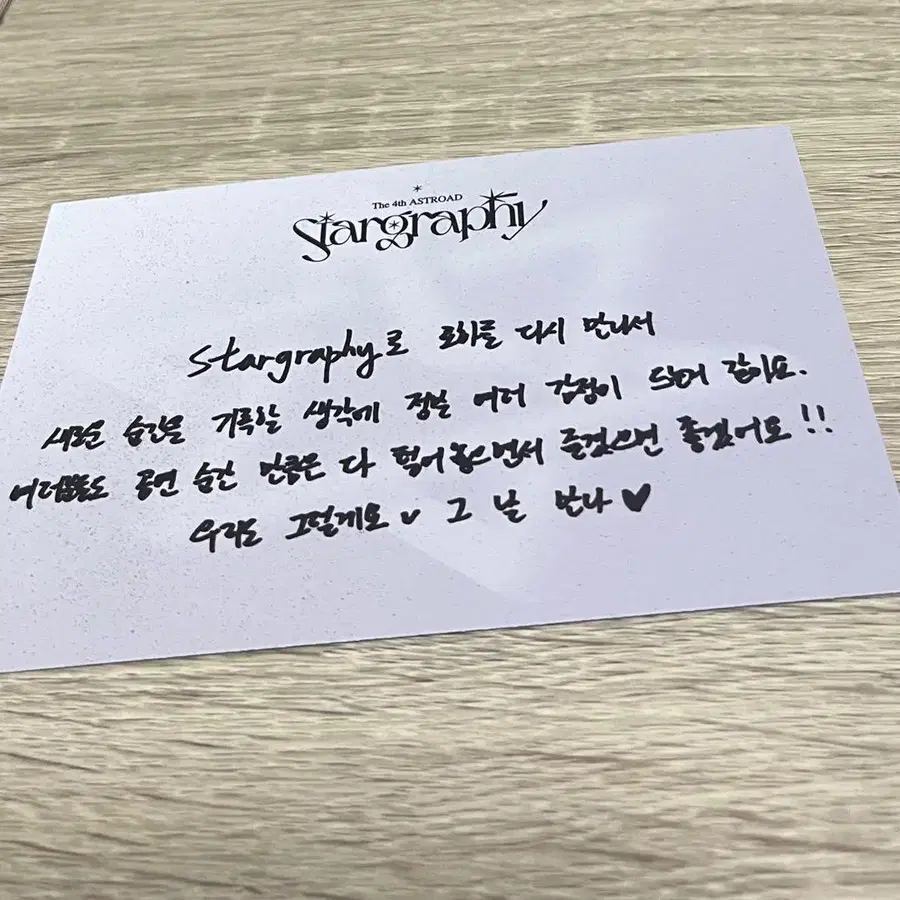 The 4th ASTROAD
Stargraphy
Stargraphy로 로하를 다시 만나서
새로운 순간을 기록할 생각에 정말 여러 감정이 드는거 같아요.
여러분들도 공연 순간 만큼은 다 털어놓으면서 즐겼으면 좋겠어요!!
우리도 그럴게요 그 날 만나♥